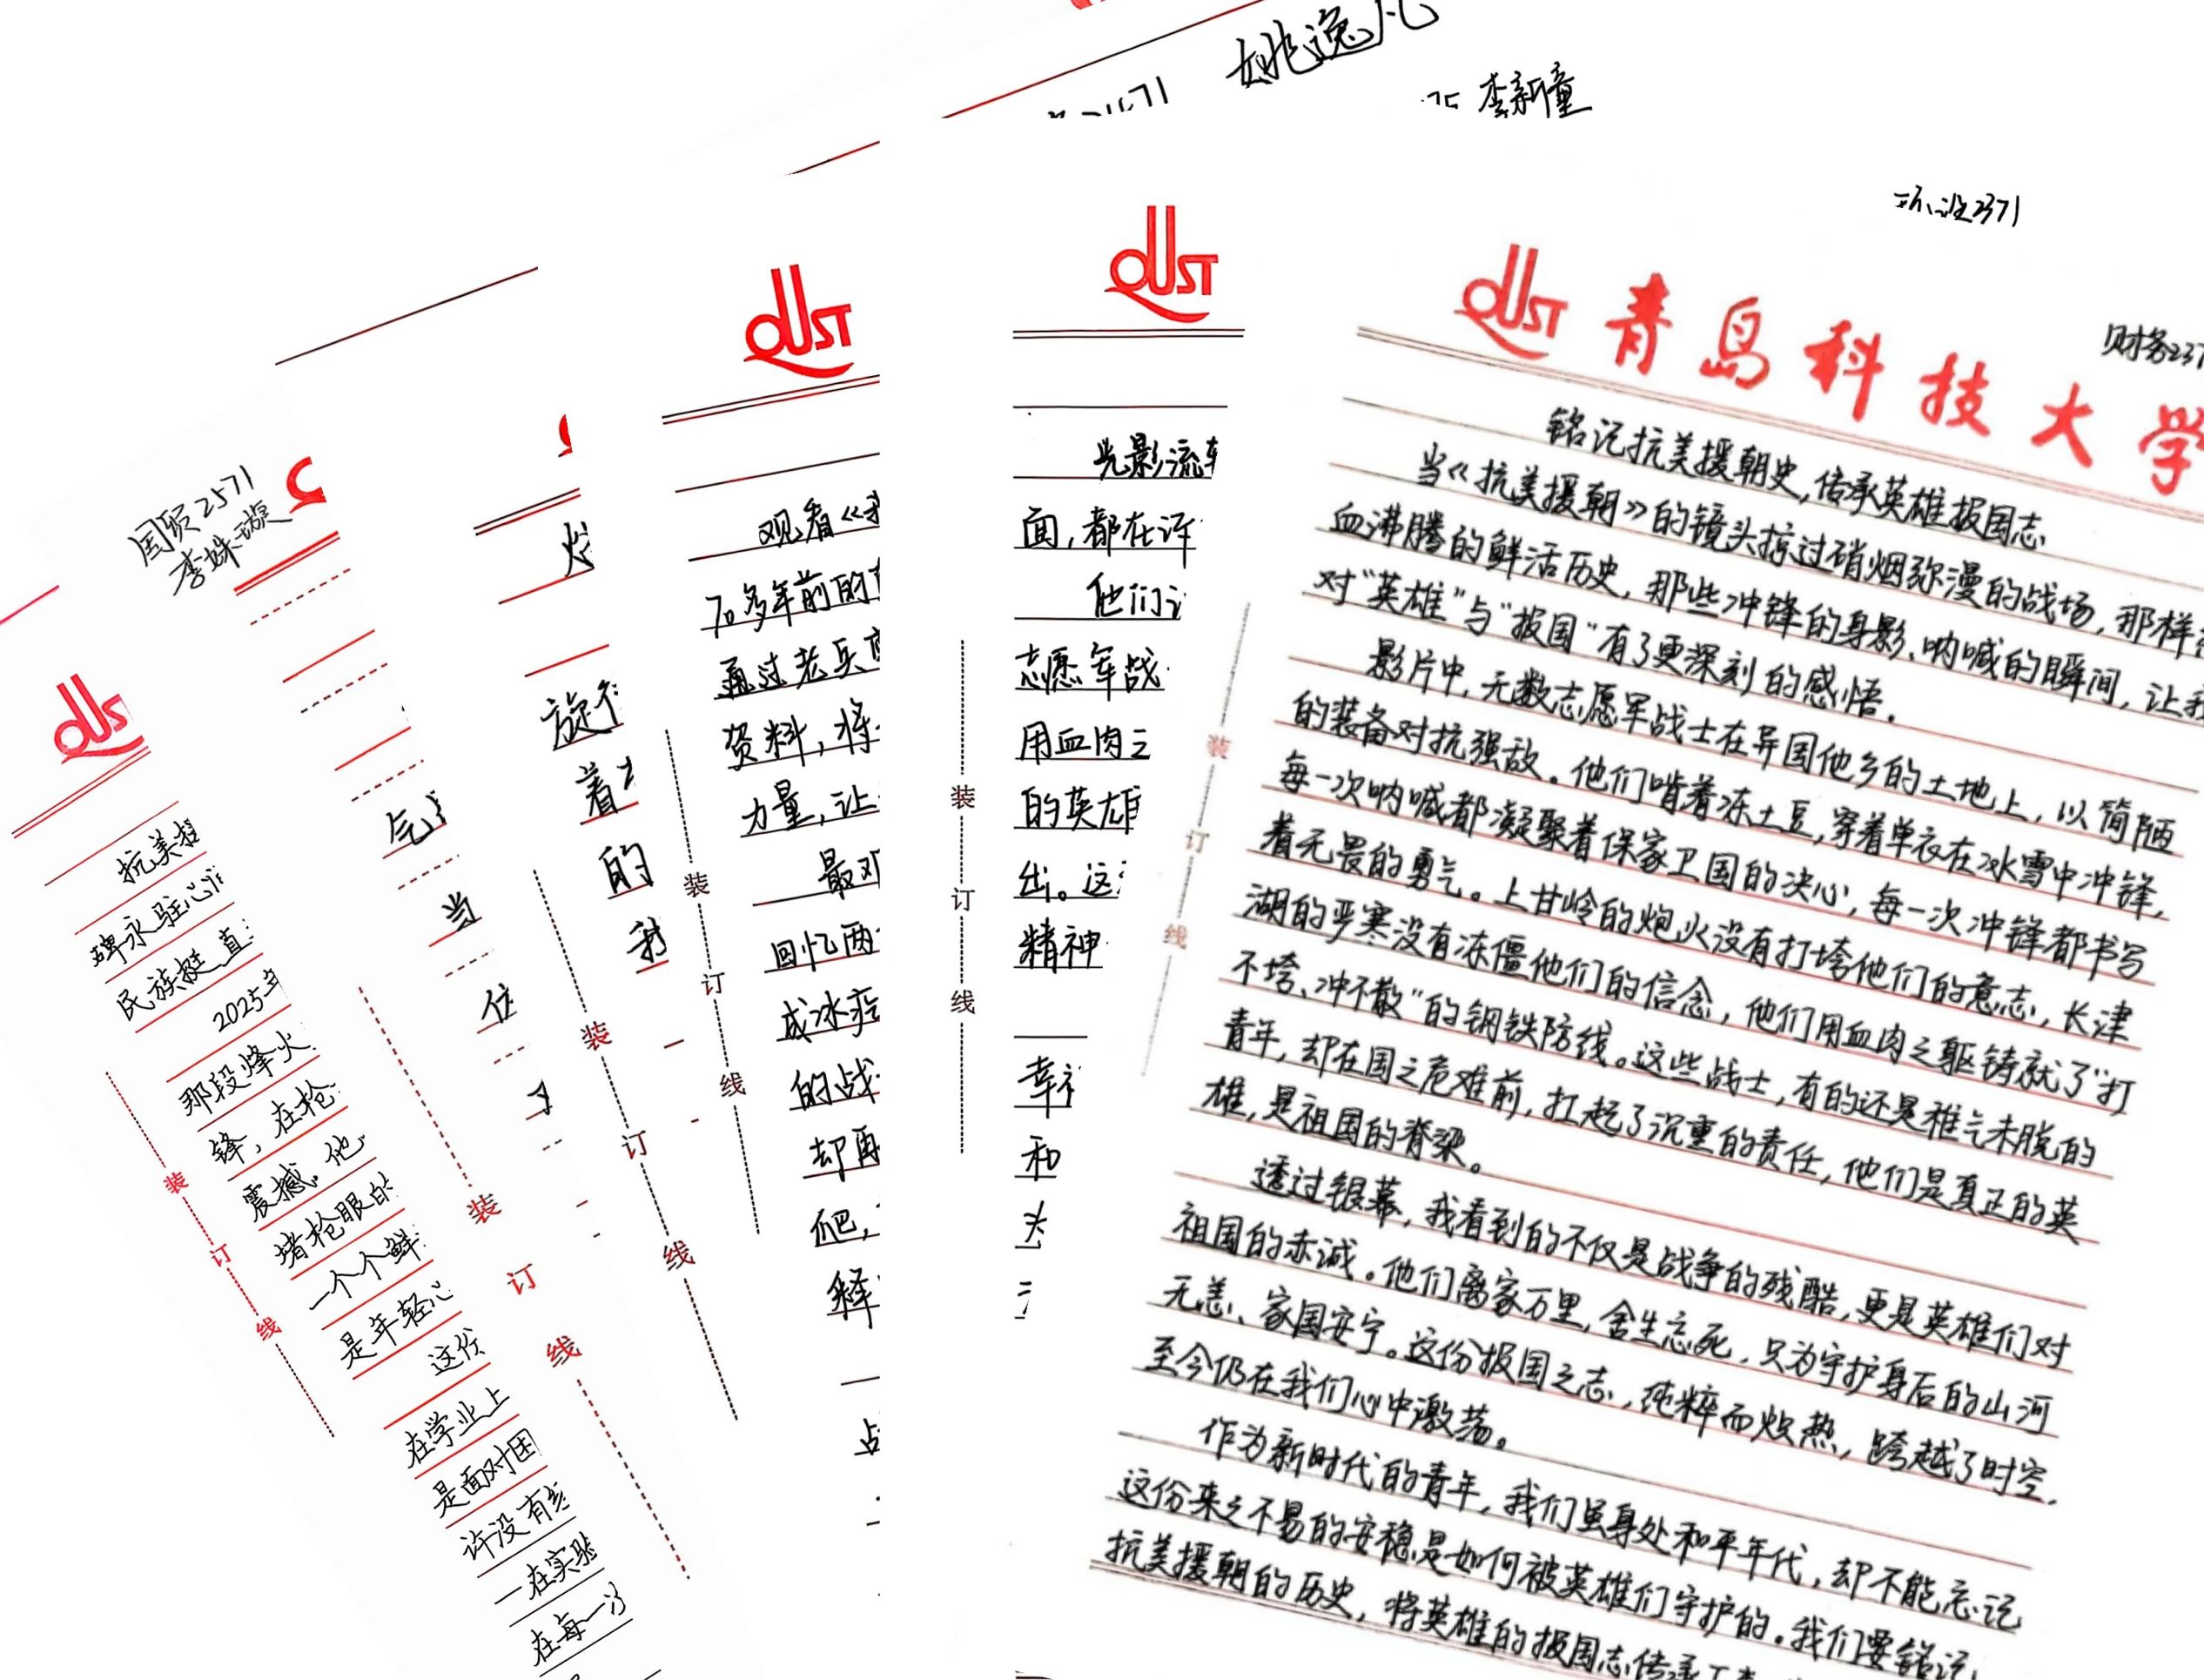 姚逸凡
李新童
2371
QUST
青岛科技大学
财务237
铭记抗美援朝史,传承英雄报国志
当《抗美援朝》的镜头掠过硝烟弥漫的战场,那样
血沸腾的鲜活历史,那些冲锋的身影、呐喊的瞬间,让我
对"英雄"与"报国"有了更深刻的感悟。
影片中,无数志愿军战士在异国他乡的土地上,以简陋
的装备对抗强敌。他们啃着冻土豆,穿着单衣在冰雪中冲锋,
每一次呐喊都凝聚着保家卫国的决心,每一次冲锋都书写
着无畏的勇气。上甘岭的炮火没有打垮他们的意志,长津
湖的严寒没有冻僵他们的信念,他们用血肉之躯铸就了"打
不垮、冲不散"的钢铁防线。这些战士,有的还是稚气未脱的
青年,却在国之危难前,扛起了沉重的责任,他们是真正的英
雄,是祖国的脊梁。
透过银幕,我看到的不仅是战争的残酷,更是英雄们对
祖国的赤诚。他们离家万里,舍生忘死,只为守护身后的山河
无恙、家国安宁。这份报国之志,纯粹而炽热,跨越了时空,
至今仍在我们心中激荡。
作为新时代的青年,我们虽身处和平年代,却不能忘记
这份来之不易的安稳是如何被英雄们守护的。我们要铭记
抗美援朝的历史,将英雄的报国志传承
装
订
线
QUST
光影流转
面,都在诉
他们
志愿军战
用血肉之
的英雄
出。这
精神
幸福
和
为
装
订
线
QUST
观看《
70多年前的
通过老兵
资料,将
力量,让
最难
回忆两
成冰
的战
却再
爬,
释
装
订
线
旋律
着
的
我
装
订
线
气
当
位
装
订
线
国贸2571
李姝璇
QUS
抗美援
碑永驻心
民族挺直
2025年
那段烽火
锋,在枪
震撼。他
堵枪眼的
一个个鲜
是年轻心
这份
在学业上
是面对困
许没有
一在实验
在每一次
装
订
线